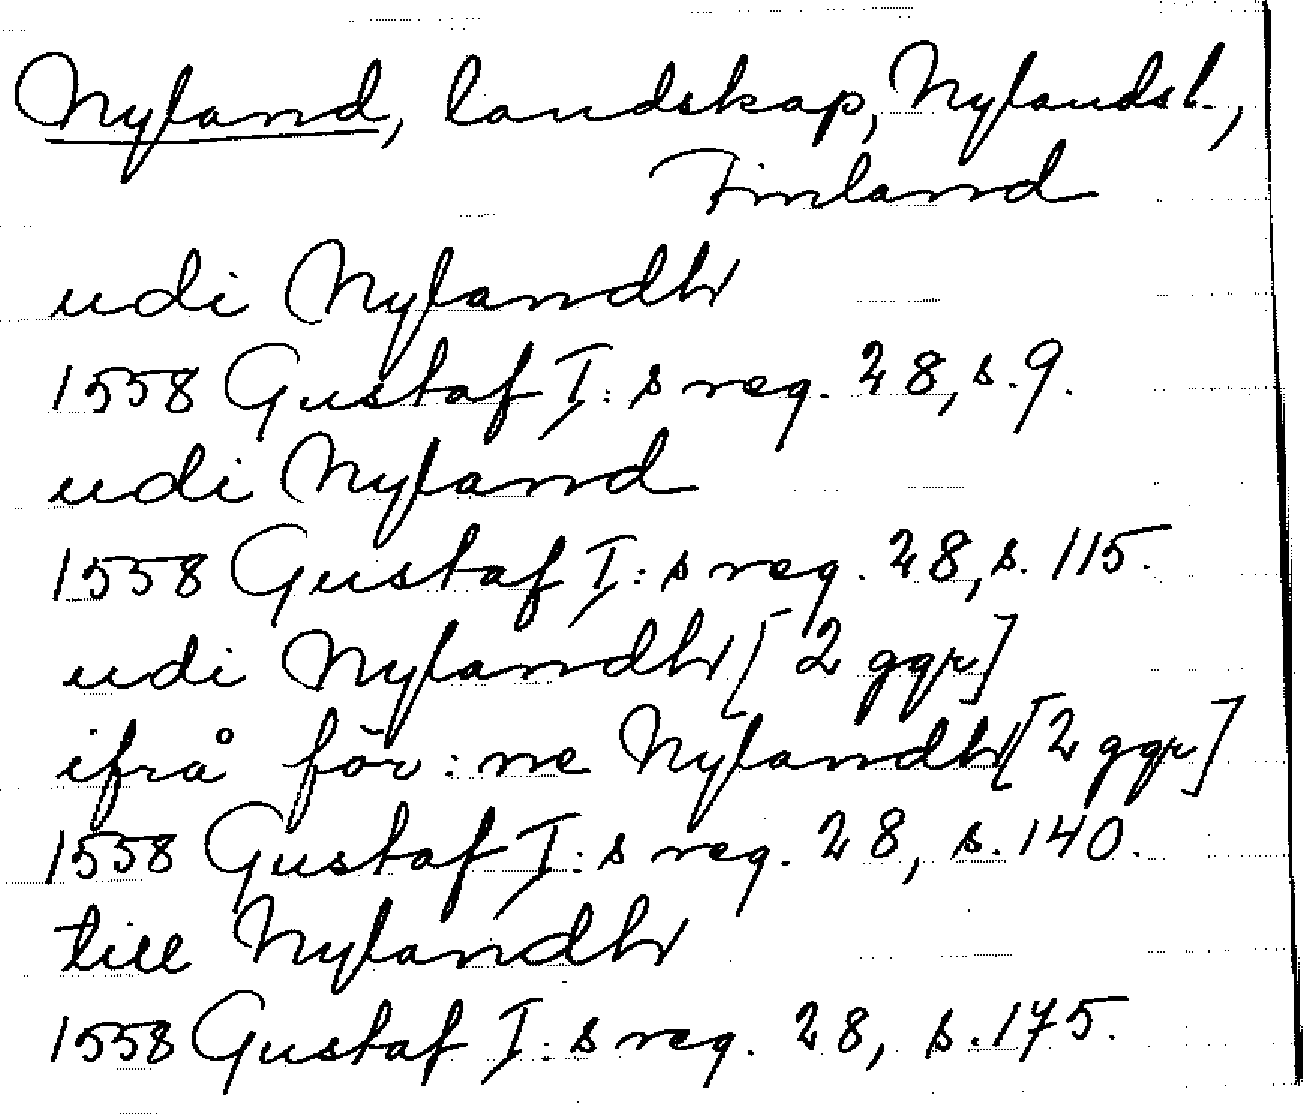 Nyland, landskap, Nylandsl.,
Finland
udi Nylandh
1558 Gustaf I:s reg. 28, s. 9.
udi Nyland
1558 Gustaf I:s reg. 28, s. 115.
udi Nylandh [2 ggr]
ifrå för:ne Nylandh [2 ggr]
1558 Gustaf I:s reg. 28, s. 140.
till Nylandh
1558 Gustaf I:s reg. 28, s. 175.